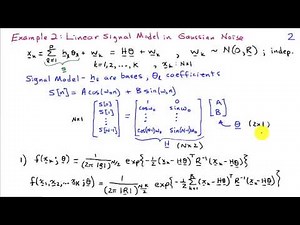 Example 2: Linear Signal Model in Gaussian Noise 2
x_k = Σ_{ℓ=1}^{p} h_ℓ θ_ℓ + w_k = Hθ + w_k , w_k ~ N(0,R); indep.
k=1,2,...,K , x_k: N×1
Signal Model - h_ℓ are bases, θ_ℓ coefficients
s[n] = A cos(ωₒn) + B sin(ωₒn)
N×1 [s[0] s[1] ⋮ s[N-1]] = [1 0; cosωₒ sinωₒ; ⋮ ⋮; cos(N-1)ωₒ sin(N-1)ωₒ] [A B]
θ (2×1)
H (N×2)
1) f(x_k; θ) = 1/((2π)|R|)^{N/2} exp{-½(x_k-Hθ)ᵀR⁻¹(x_k-Hθ)}
f(x_1,x_2,...x_K; θ) = exp{-½Σ_{k=1}^{K}(x_k-Hθ)ᵀR⁻¹(x_k-Hθ)}